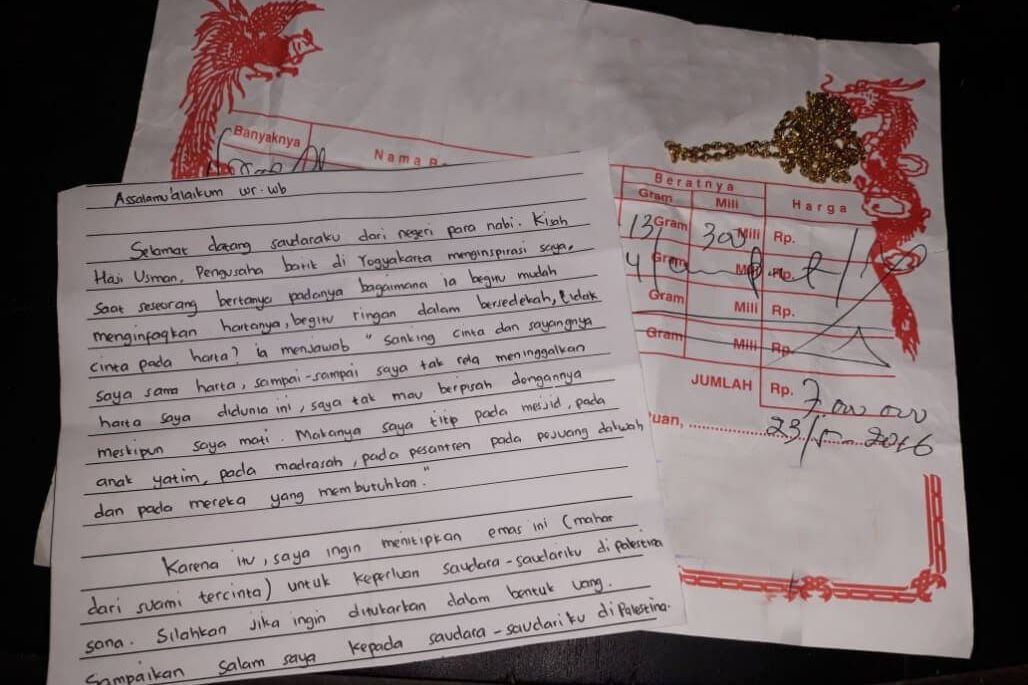 Banyaknya
Nama B
Beratnya
Gram Mili Harga
13 Gram 300 Mili Rp.
Gram Mili Rp.
Gram Mili Rp.
Gram Mili Rp.
JUMLAH Rp. 7.000 000
uan, 23/5-2016
Assalamu'alaikum wr.wb
Selamat datang saudaraku dari negeri para nabi. Kisah
Haji Usman, Pengusaha batik di Yogyakarta menginspirasi saya.
Saat seseorang bertanya padanya bagaimana ia begitu mudah
menginfaqkan hartanya, begitu ringan dalam bersedekah, tidak
cinta pada harta? ia menjawab " sanking cinta dan sayangnya
saya sama harta, sampai-sampai saya tak rela meninggalkan
harta saya didunia ini, saya tak mau berpisah dengannya
meskipun saya mati. Makanya saya titip pada mesjid, pada
anak yatim, pada madrasah, pada pesantren pada pejuang dakwah
dan pada mereka yang membutuhkan."
Karena itu, saya ingin menitipkan emas ini (mahar
dari suami tercinta) untuk keperluan saudara-saudariku di palestina
sana. Silahkan jika ingin ditukarkan dalam bentuk uang.
Sampaikan salam saya kepada saudara-saudariku di Palestina.